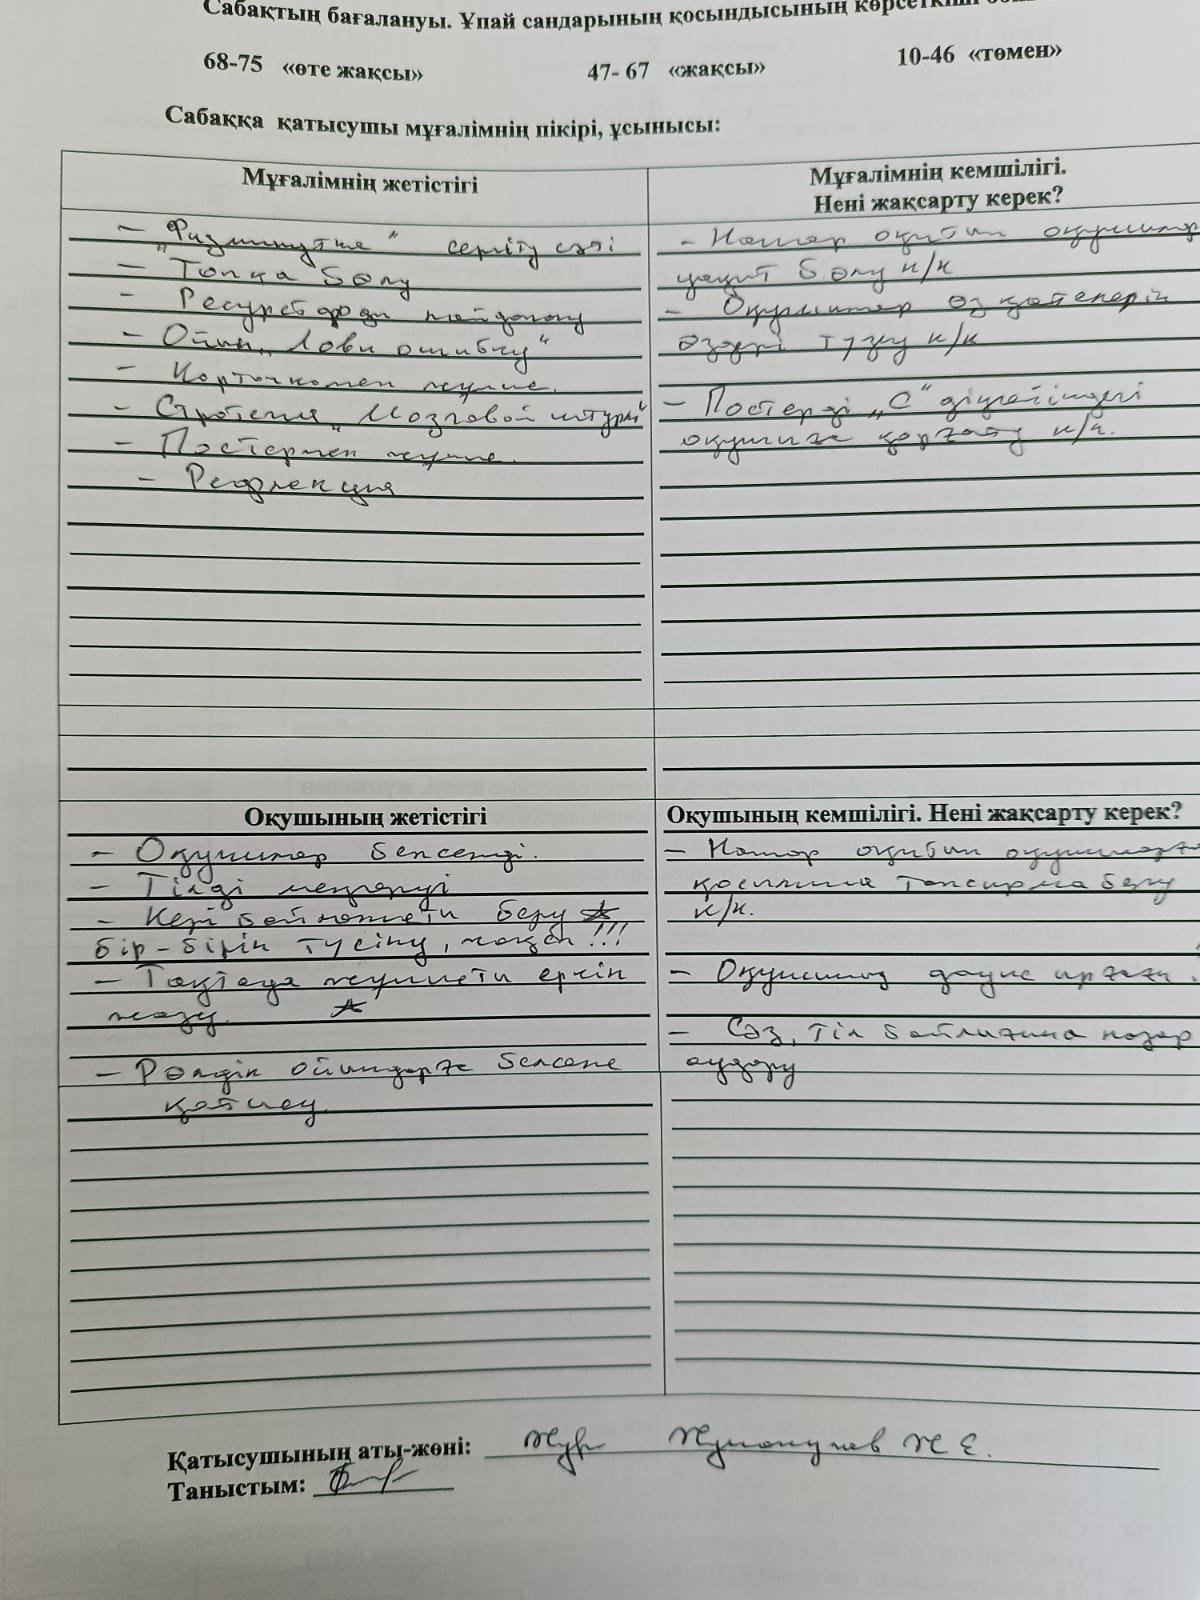 Сабақтың бағалануы. Ұпай сандарының қосындысының көрсеткіші
68-75 «өте жақсы» 47- 67 «жақсы» 10-46 «төмен»
Сабаққа қатысушы мұғалімнің пікірі, ұсынысы:
Мұғалімнің жетістігі
- "Физминутка" сергіту сәті
- Топқа бөлу
- Ресурстарды пайдалану
- Ойын „Лови ошибку"
- Карточкамен жұмыс.
- Стратегия „Мозговой штурм"
- Постермен жұмыс.
- Рефлекция
Мұғалімнің кемшілігі.
Нені жақсарту керек?
- Нашар оқитын оқушылар
уақыт бөлу к/к
- Оқушылар өз қателерін
өздері түзу к/к
- Постерді „С" деңгейіндегі
оқушыға қорғату к/к.
Оқушының жетістігі
- Оқушылар белсенді.
- Тілді меңгеруі
- Кері байланысты беру
бір-бірін түсіну, !!!
- Тақтаға жұмысты еркін
жазу.
- Рөлдік ойындарға белсене
қатысу.
Оқушының кемшілігі. Нені жақсарту керек?
- Нашар оқитын оқушыларға
қосымша тапсырма беру
к/к.
- Оқушының дауыс ырғағы
- Сөз, тіл байлығына назар
аудару
Қатысушының аты-жөні: Ж Е.
Таныстым: